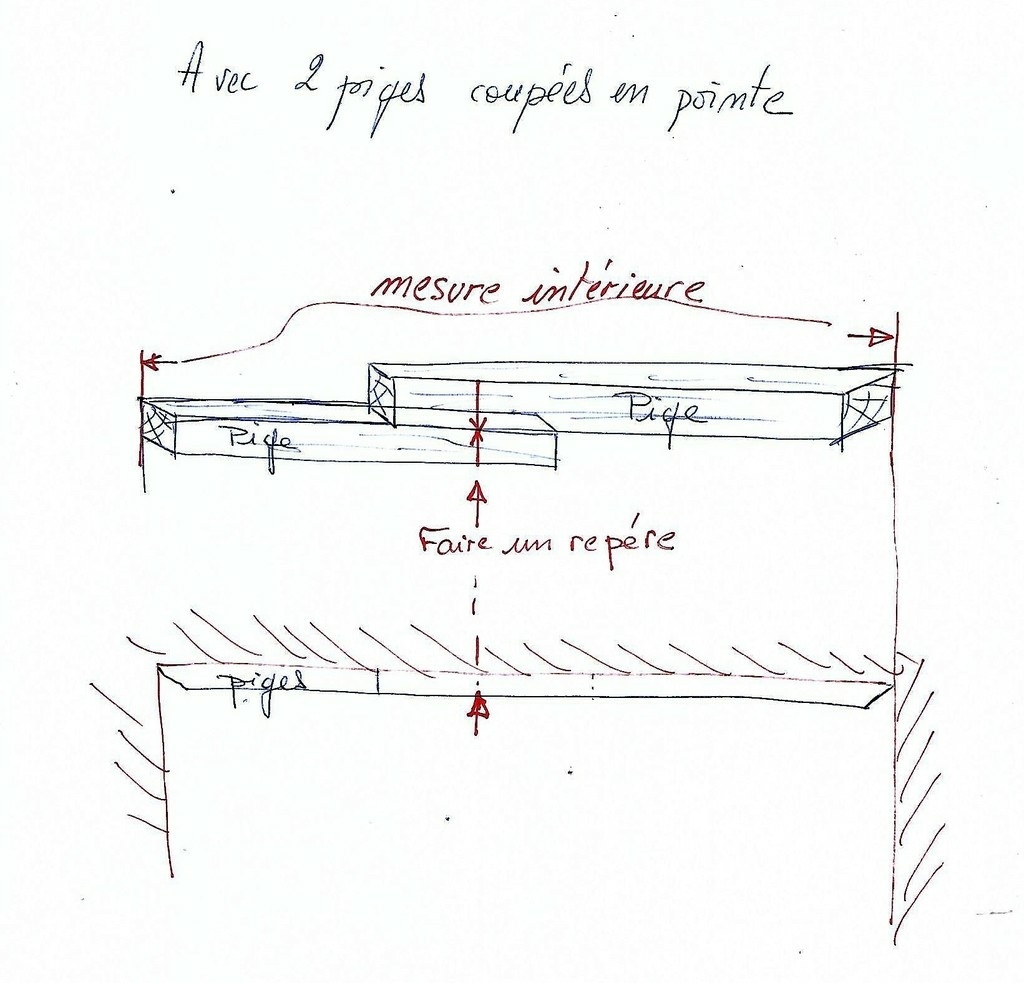 Avec 2 piges coupées en pointe
mesure intérieure
Pige
Pige
Faire un repére
piges